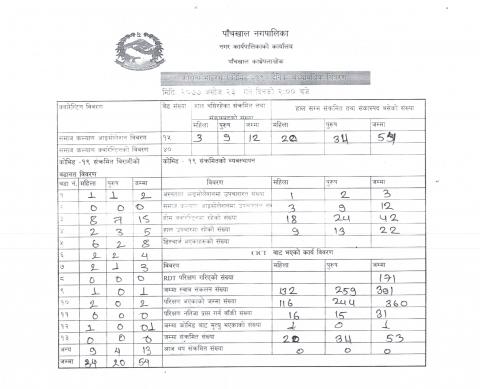 पाँचखाल नगरपालिका
नगर कार्यपालिकाको कार्यालय
पाँचखाल काभ्रेपलाञ्चोक
मिति २०७७ असोज २३ गते दिउसो २:०० बजे
क्वारेन्टिन विवरण बेड संख्या हाल बसिरहेका संक्रमित तथा हाल सम्म संक्रमित तथा शंकास्पद बसेको संख्या
महिला पुरुष जम्मा महिला पुरुष जम्मा
समाज कल्याण आइसोलेसन विवरण १५ 3 9 12 20 34 54
समाज कल्याण क्वारेन्टिनको विवरण ४०
कोभिड -१९ संक्रमित बिरामीको कोभिड - १९ संक्रमितको व्यवस्थापन
वडागत विवरण
वडा नं. महिला पुरुष जम्मा विवरण महिला पुरुष जम्मा
१ 1 1 2 अस्पताल आइसोलेसनमा उपचाररत संख्या 1 2 3
२ 0 0 0 समाज कल्याण आइसोलेसनमा उपचाररत संख्या 3 9 12
३ 8 7 15 होम क्वारेन्टिनमा रहेको संख्या 18 24 42
४ 2 3 5 हाल उपचारमा रहेको संख्या 9 13 22
५ 6 2 8 डिस्चार्ज भएकाहरुको संख्या
६ 2 2 4 बाट भएको कार्य विवरण
७ 2 1 3 विवरण महिला पुरुष जम्मा
८ 0 0 0 RDT परिक्षण गरिएको संख्या 171
९ 1 0 1 जम्मा स्वाब संकलन संख्या 132 259 391
१० 2 0 2 परिक्षण भएको जम्मा संख्या 116 244 360
११ 0 0 0 परिक्षण नतिजा प्राप्त गर्न बाँकी संख्या 16 15 31
१२ 1 0 01 जम्मा कोभिड बाट मृत्यु भएकाको संख्या 1 0 1
१३ 0 0 0 जम्मा संक्रमित संख्या 20 34 53
अन्य 9 4 13 आज थप संक्रमित संख्या 0 0 0
जम्मा 34 20 54